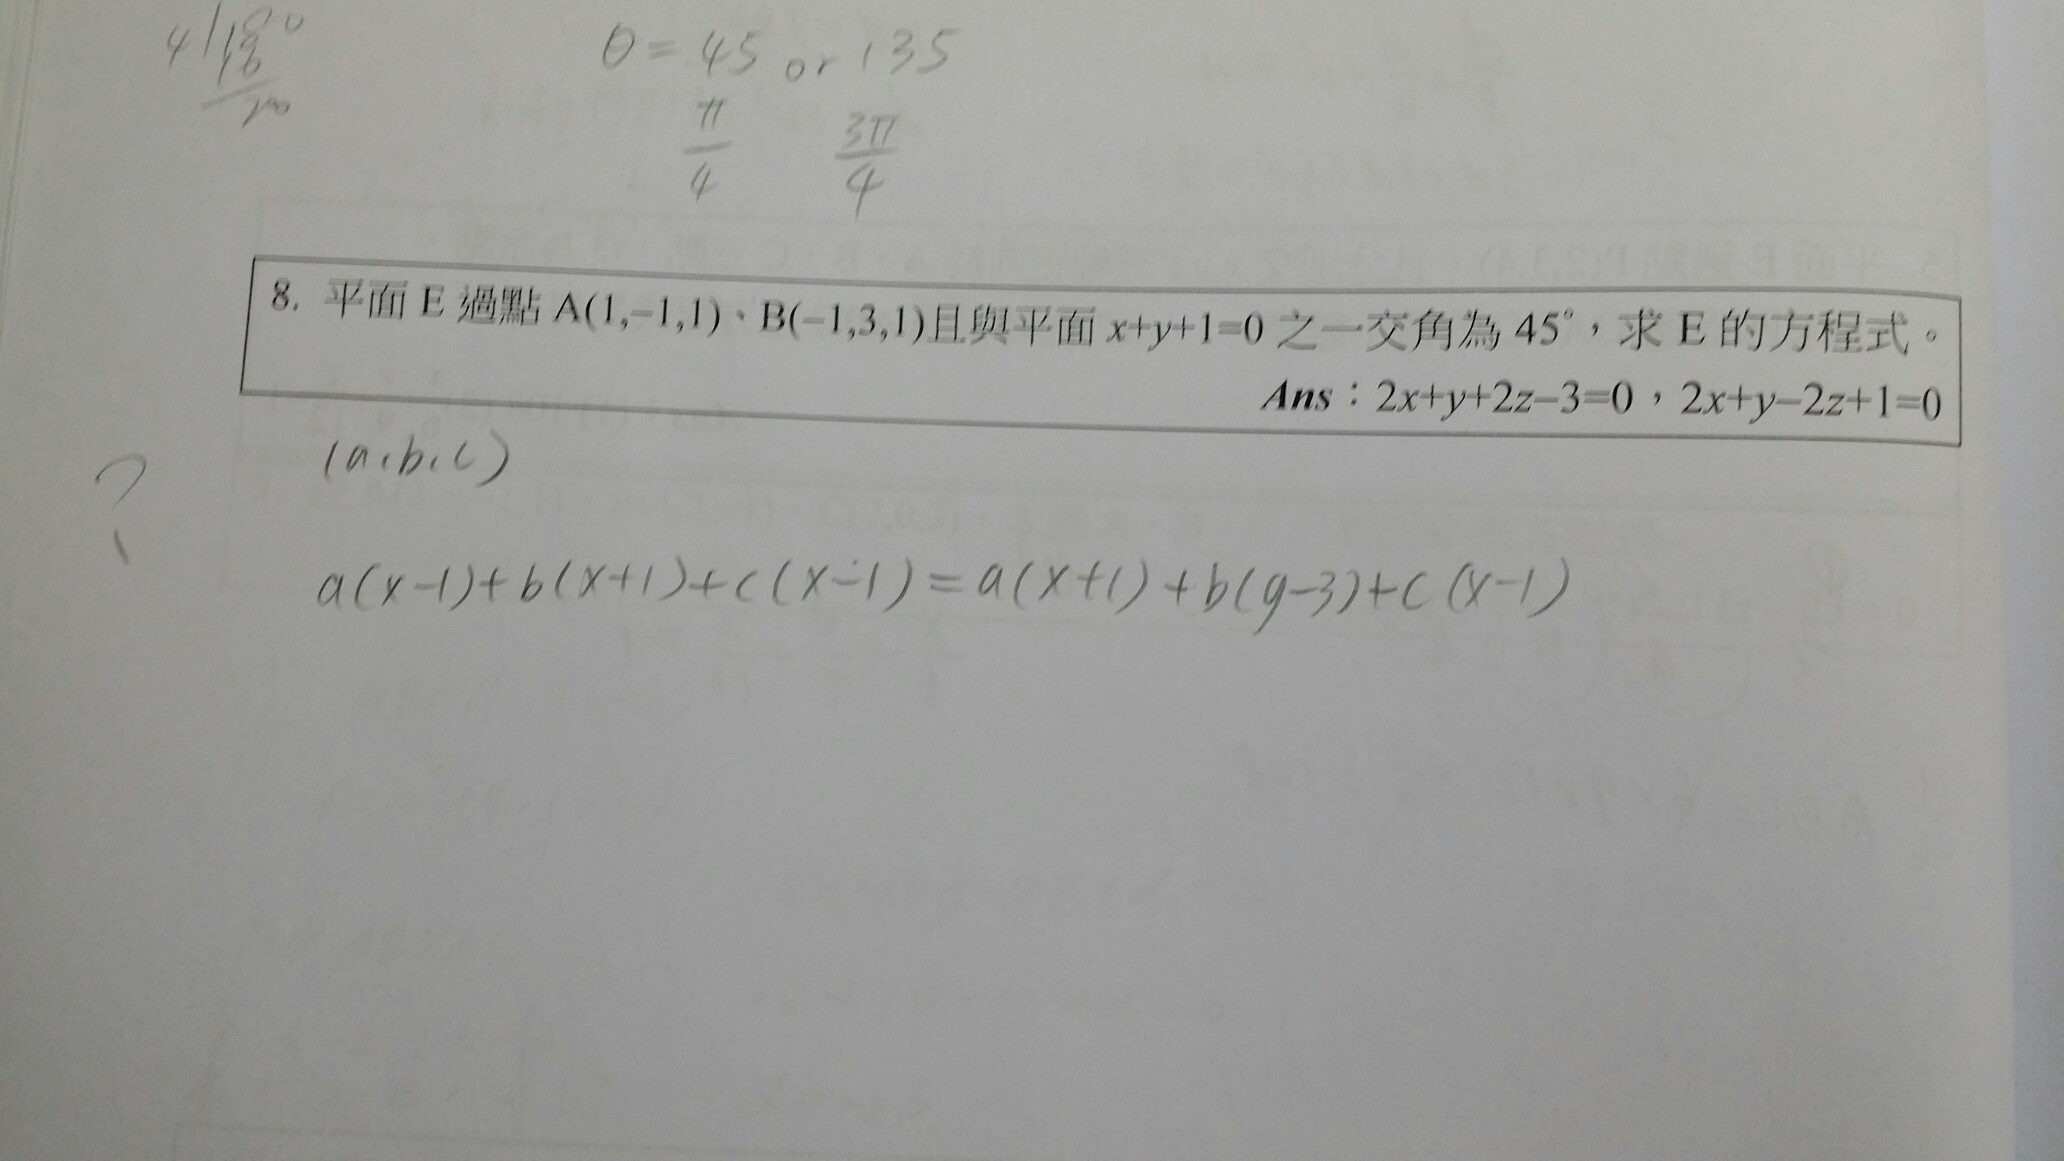 4 180
16
20
θ = 45 or 135
π/4 3π/4
8. 平面 E 過點 A(1,–1,1)、B(–1,3,1)且與平面 x+y+1=0 之一交角為 45°，求 E 的方程式。
Ans：2x+y+2z–3=0，2x+y–2z+1=0
(a,b,c)
?
a(x-1)+b(x+1)+c(x-1)=a(x+1)+b(y-3)+c(x-1)